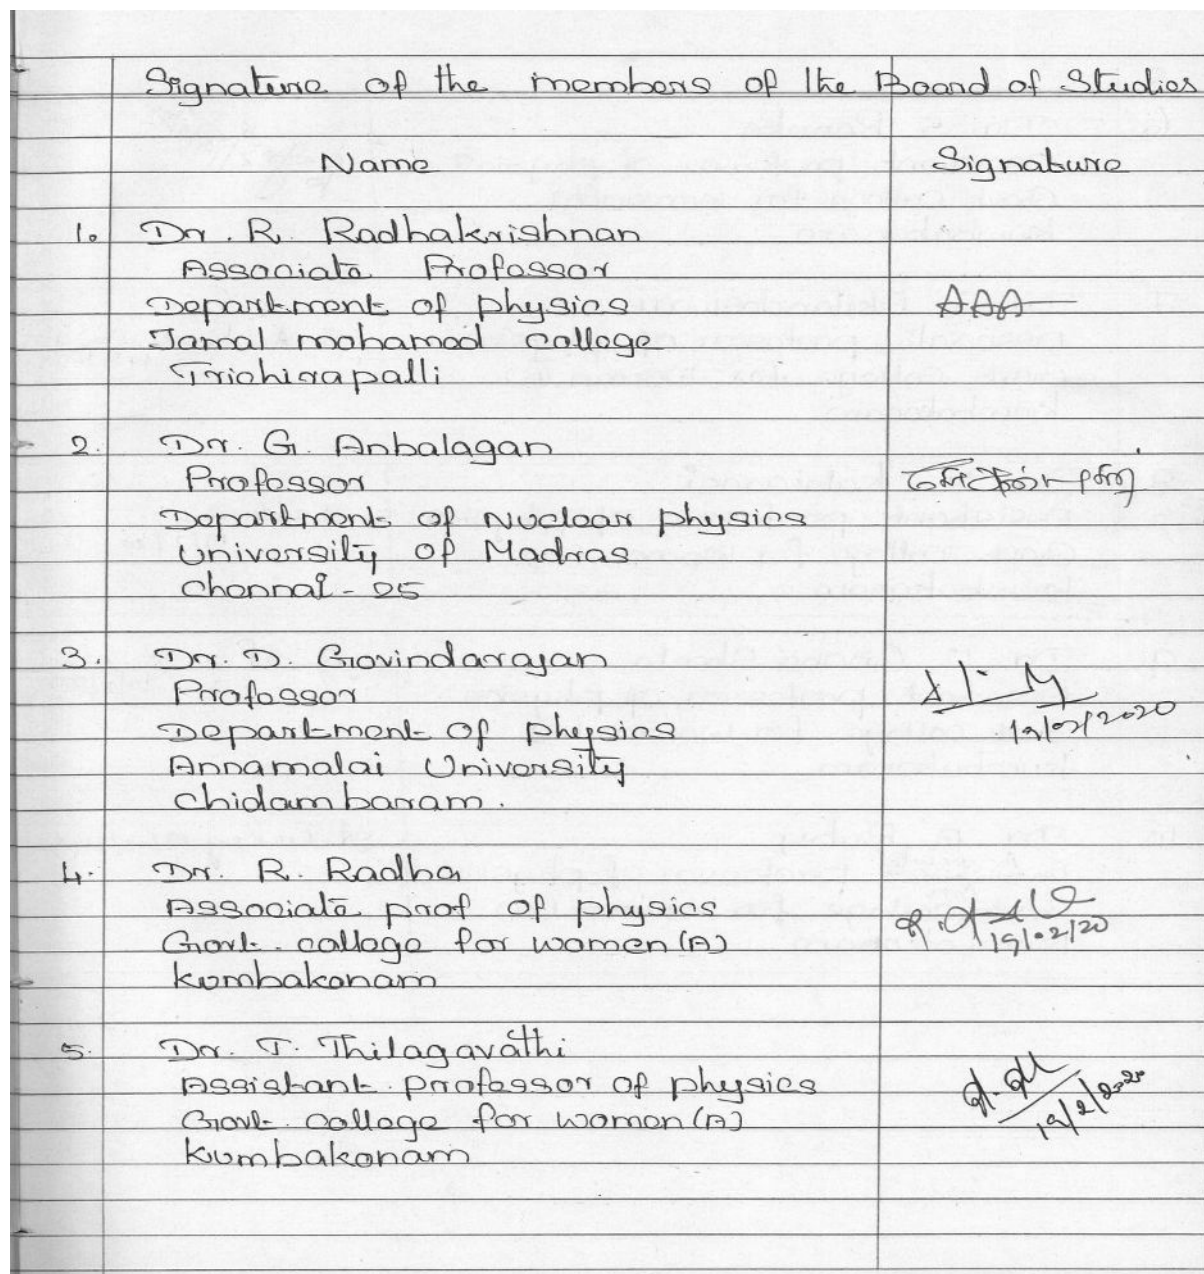 Signature of the members of the Board of Studies
Name Signature
1. Dr. R. Radhakrishnan
Associate Professor
Department of physics
Jamal mohamed college
Trichirapalli
2. Dr. G. Anbalagan
Professor
Department of Nuclear physics
University of Madras
Chennai - 25
3. Dr. D. Govindarajan
Professor
Department of physics
19/02/2020
Annamalai University
Chidambaram.
4. Dr. R. Radha
Associate prof of physics
Govt. college for women (A)
19/02/20
Kumbakonam
5. Dr. T. Thilagavathi
Assistant professor of physics
19/2/2020
Govt. college for women (A)
Kumbakonam